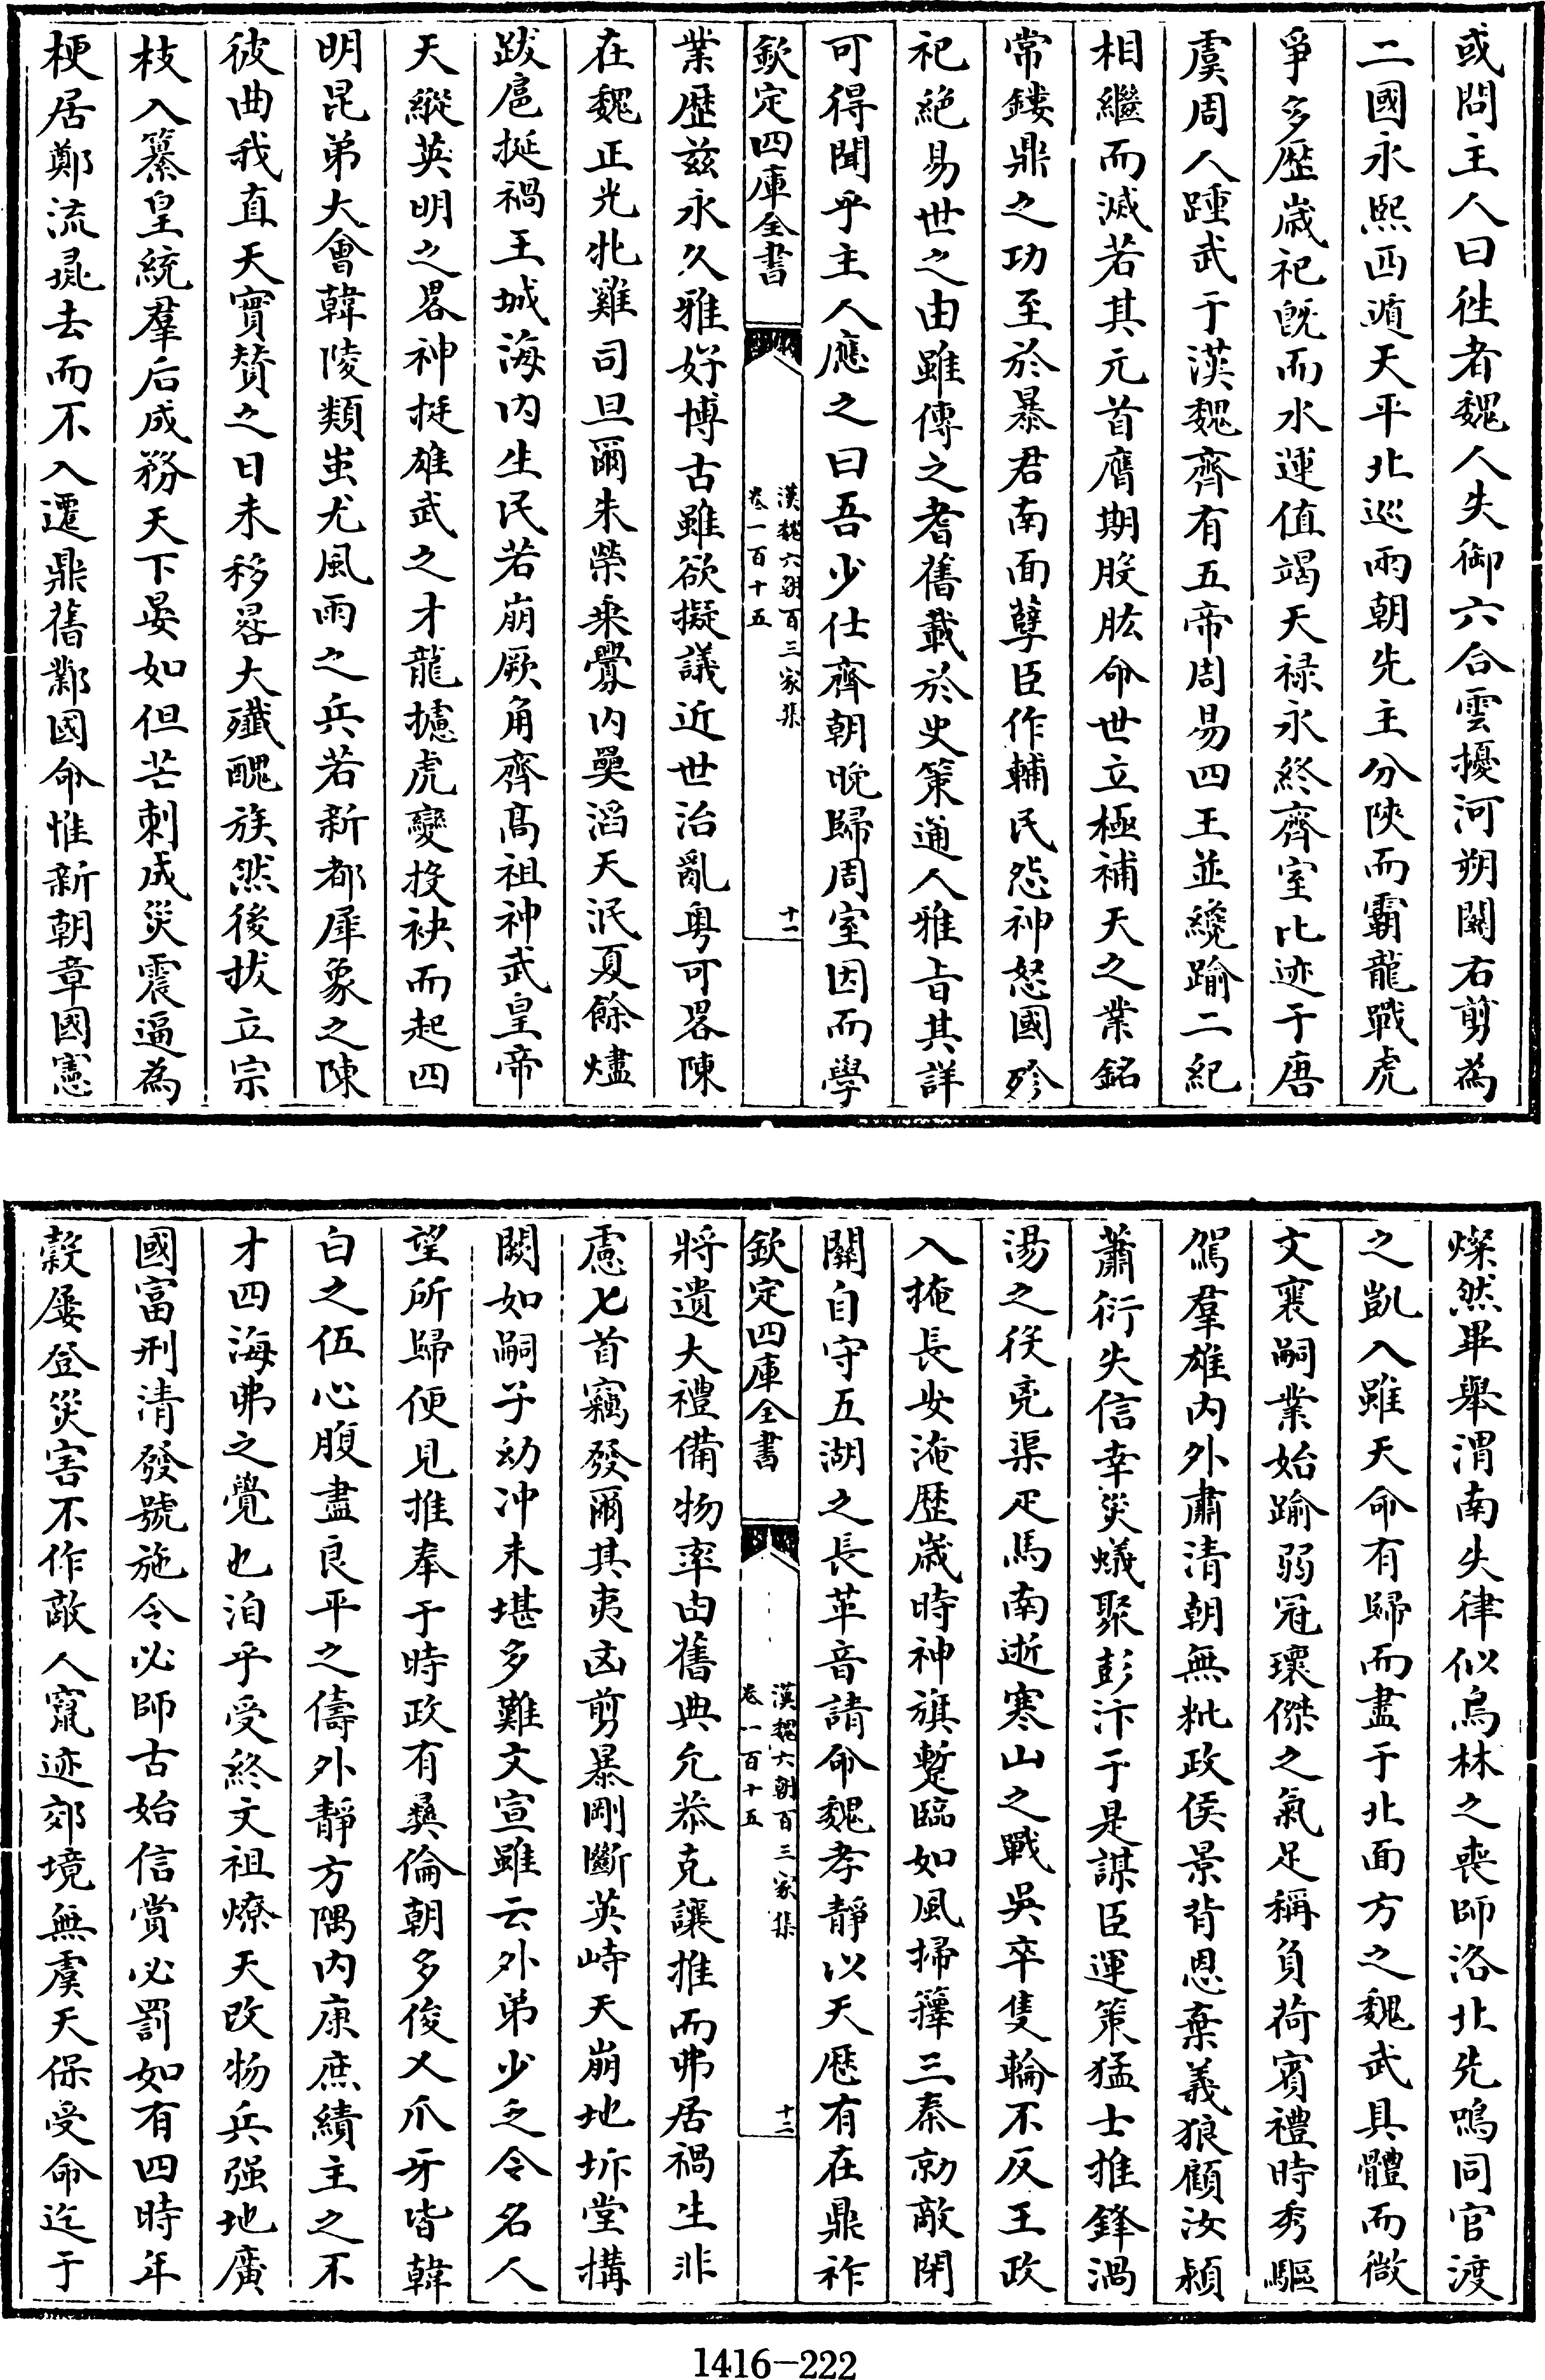 或問主人曰徃者魏人失御六合雲擾河朔關右剪為
二國永熙西遁天平北巡兩朝先主分陜而霸龍戰虎
爭多歴嵗祀既而水運值竭天禄永終齊室比迹于唐
虞周人踵武于漢魏齊有五帝周易四王並纔踰二紀
相繼而滅若其元首膺期股肱命世立極補天之業銘
常鏤鼎之功至於暴君南面孽臣作輔民怨神怒國殄
祀絶易世之由雖傳之耆舊載於史策通人雅旨其詳
可得聞乎主人應之曰吾少仕齊朝晚歸周室因而學
欽定四庫全書
漢魏六朝百三家集
卷一百十五
十一
業歴兹永久雅好博古雖欲擬議近世治亂粤可畧陳
在魏正光牝雞司旦爾朱榮乗釁内奰滔天泯夏餘燼
跋扈挻禍王城海内生民若崩厥角齊髙祖神武皇帝
天縱英明之畧神挺雄武之才龍攄虎變投袂而起四
明昆弟大會韓陵類蚩尤風雨之兵若新都犀象之陳
彼曲我直天實贊之日未移晷大殲醜族然後拔立宗
枝入纂皇統羣后成務天下晏如但芒刺成災震逼為
梗居鄭流彘去而不入遷鼎舊鄴國命惟新朝章國憲
燦然畢舉渭南失律似烏林之喪師洛北先鳴同官渡
之凱入雖天命有歸而盡于北面方之魏武具體而微
文襄嗣業始踰弱冠瓌傑之氣足稱負荷賓禮時秀驅
駕羣雄内外肅清朝無粃政侯景背恩棄義狼顧汝潁
蕭衍失信幸災蟻聚彭汴于是謀臣運策猛士推鋒渦
湯之役亮渠疋馬南逝寒山之戰吳卒隻輪不反王政
入掩長安淹歴嵗時神旗蹔臨如風掃籜三秦勍敵閉
關自守五湖之長革音請命魏孝靜以天厯有在鼎祚
欽定四庫全書
漢魏六朝百三家集
卷一百十五
十二
將遺大禮備物率由舊典允恭克讓推而弗居禍生非
慮匕首竊發爾其夷凶剪暴剛斷英峙天崩地坼堂搆
闕如嗣子幼冲未堪多難文宣雖云外弟少乏令名人
望所歸便見推奉于時政有彞倫朝多俊乂爪牙皆韓
白之伍心腹盡良平之儔外靜方隅内康庶績主之不
才四海弗之覺也洎乎受終文祖燎天改物兵强地廣
國富刑清發號施令必師古始信賞必罰如有四時年
穀屢登災害不作敵人竄迹郊境無虞天保受命迄于
1416-222